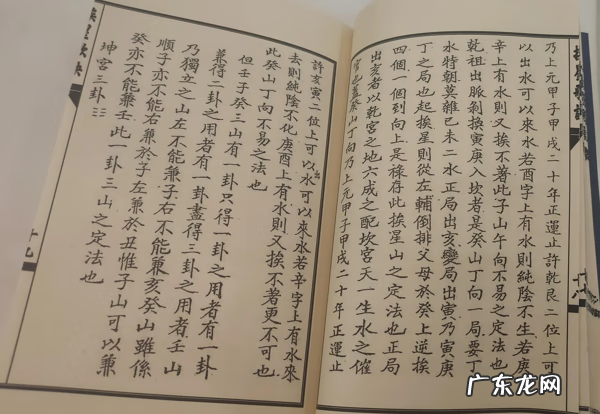 乃上元甲子甲戌二十年正運止許乾艮二位上可
以出水可以來水若酉字上有水則純陰不生若庚
辛上有水則又挨不著此子山午向不易之法也
乾祖出脈剝換寅庚入坎者是癸山丁向一局要丁
水特朝莫雜巳未二水正局出亥變局出寅乃寅庚
丁之局也起挨星則從左輔倒排父母於癸上逆挨
四個一個到向上是祿存此挨星山之定法也正局
出亥者以乾宮之地六成之配坎宮天一生水之催
官也蓋癸山丁向乃上元甲子甲戌二十年正運止
十八
許亥寅二位上可以出水可以來水若辛字上有水來
去則純陰不化庚酉上有水則又挨不著更不可也
此癸山丁向不易之法也
但壬子癸三山有一卦只得一卦之用者有一卦
兼得二卦之用者有一卦盡得三卦之用者壬山
乃獨立之山左不能兼子右不能兼亥癸山雖係
順子亦不能右兼於子左兼於丑惟子山可以兼
癸亦不能兼壬此一卦三山之定法也
坤宮三卦☷
挨星歌訣
十九
广东龙网